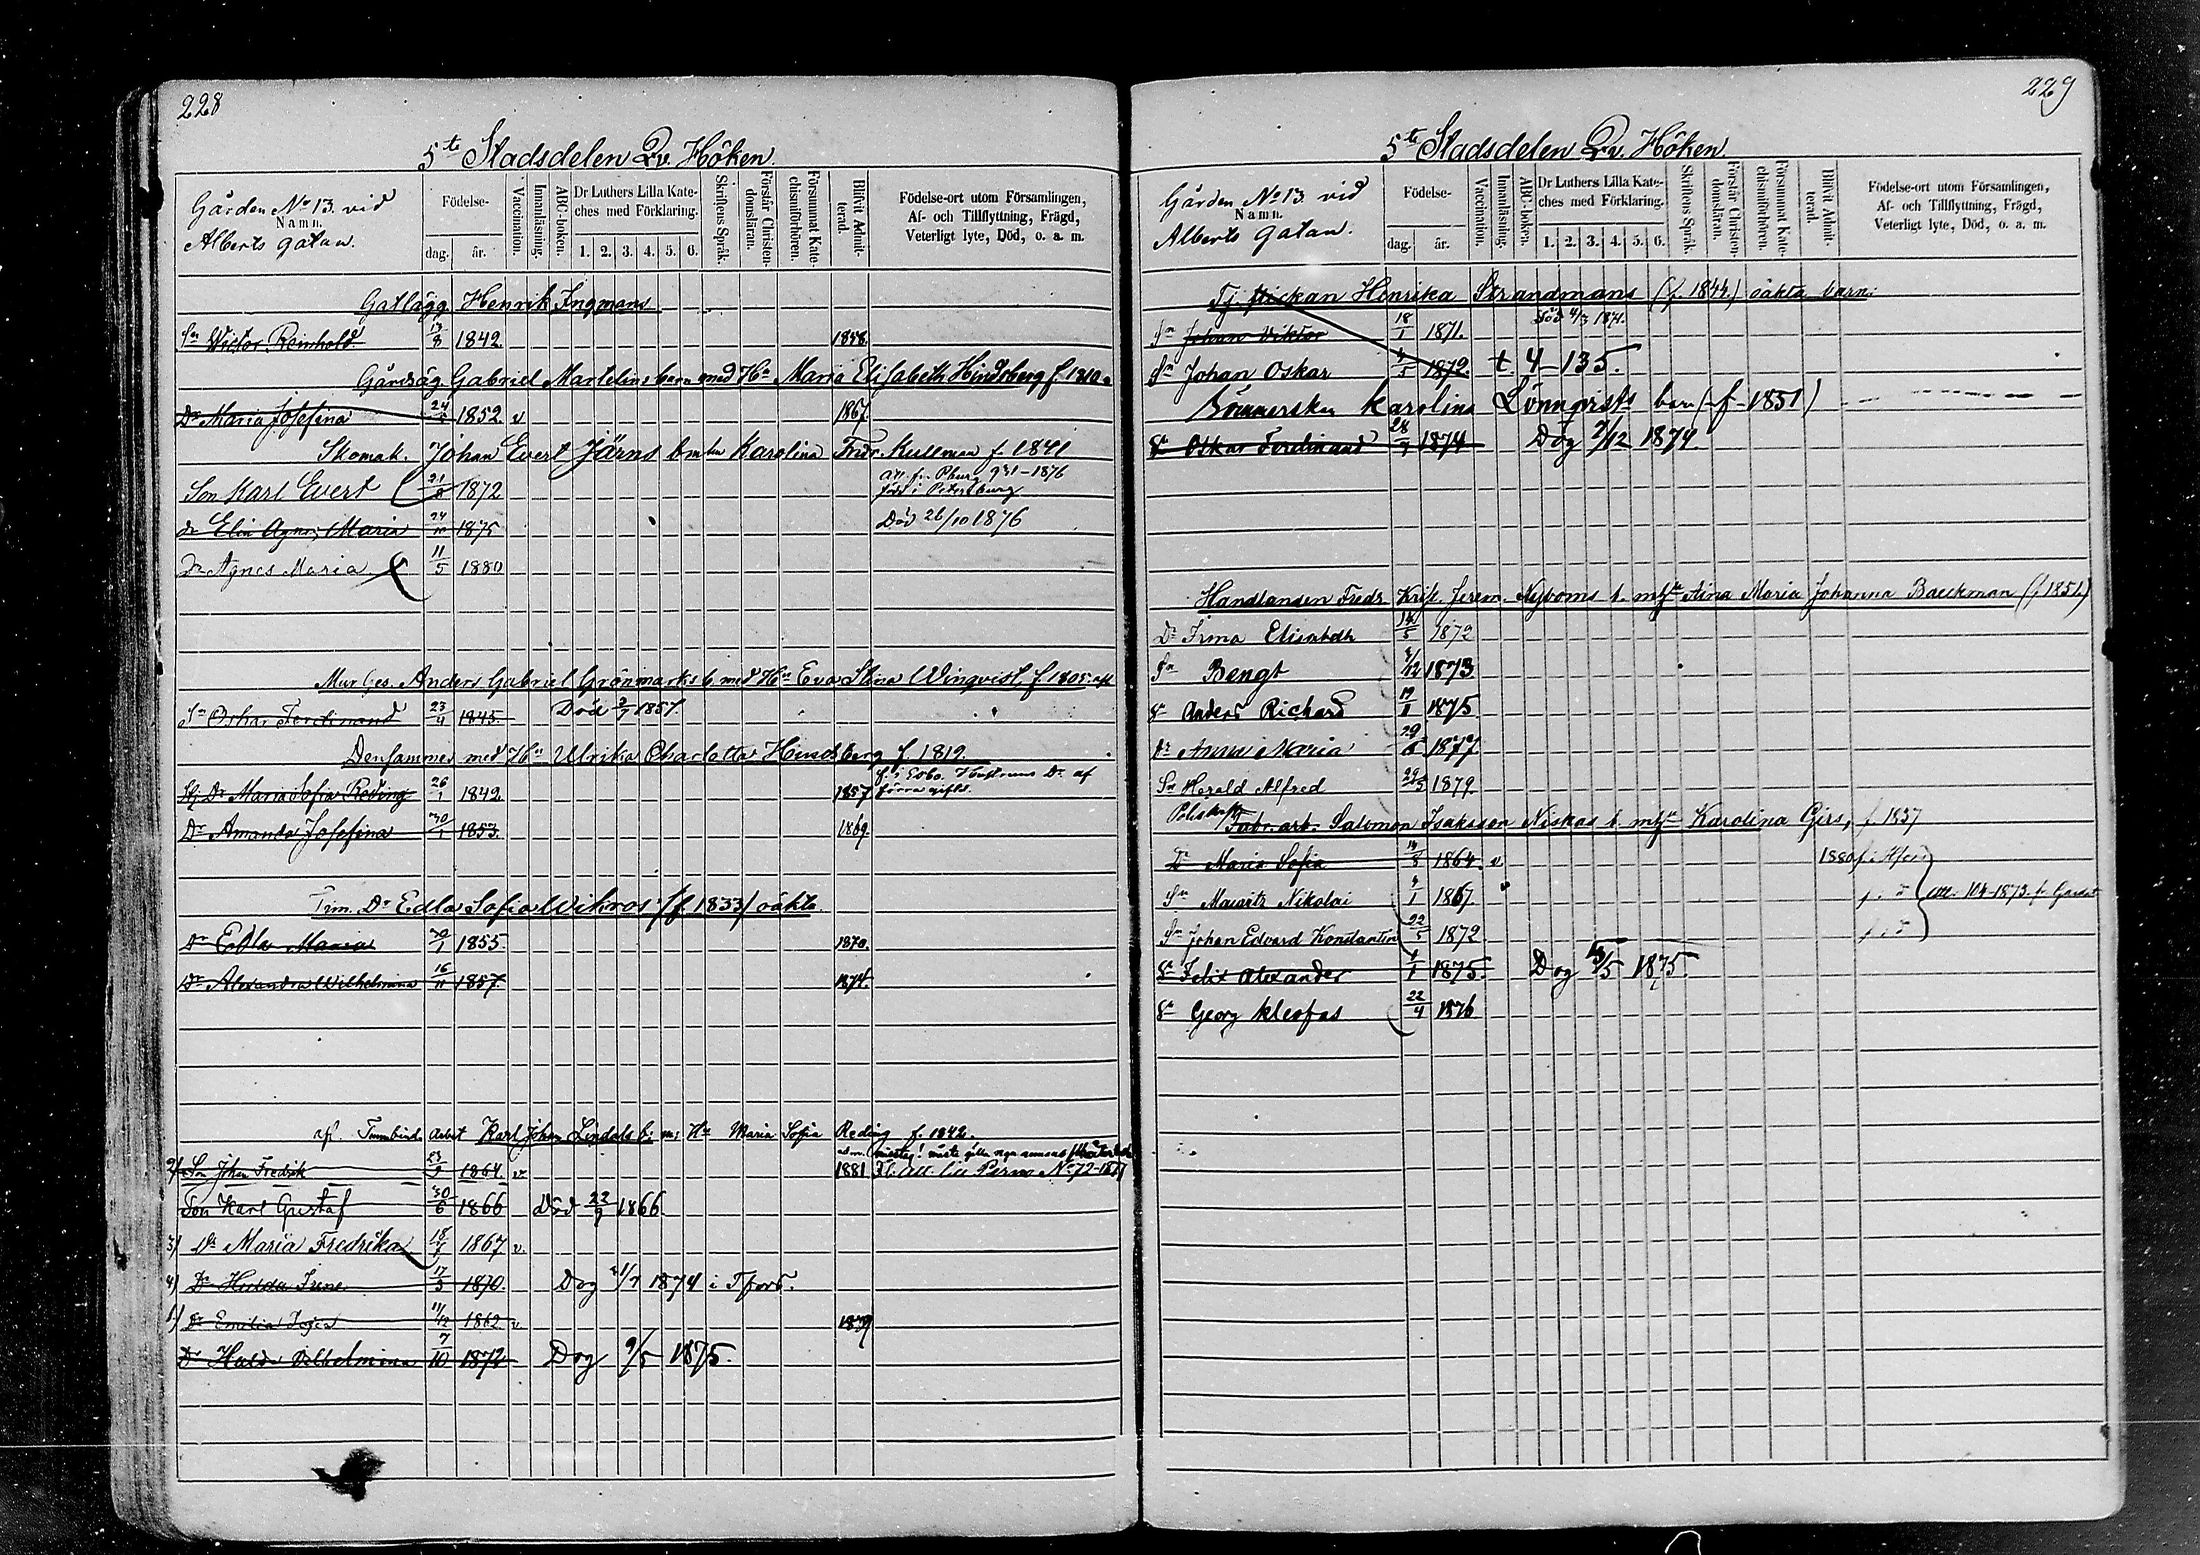 228
5te Stadsdelen Qv. Höken.
Gården No 13. vid
Namn.
Alberts gatan.
Födelse-
dag. år.
Vaccination.
Innanläsning.
ABC-boken.
Dr Luthers Lilla Kate-
ches med Förklaring.
1. 2. 3. 4. 5. 6.
Skriftens Språk.
Förstår Christen-
domsläran.
Försummat Kate-
chismiförhören.
Blifvit Admit-
terad.
Födelse-ort utom Församlingen,
Af- och Tillflyttning, Frägd,
Veterligt lyte, Död, o. a. m.
Gatlägg. Henrik Ingmans
Sn Victor Reinhold 13/8 1842. 1858.
Gårdsäg Gabriel Martelins barn med Hn Maria Elisabeth Hindsberg f. 1810
Dr Maria Josefina 1852. v 1867
Skomak. Johan Evert Järns b m hu Karolina Fredr. Kullman f. 1841
Son Karl Evert 21/8 1872 att. fr. Pburg 931-1876
född i Petersburg
dr Elin Agnes Maria 1875 Död 26/10 1876
Dr Agnes Maria 11/5 1880
Mur Ges. Anders Gabriel Grönmarks b. med Hn Eva Stina Winqvist, f. 1805.
Sn Oskar Ferdinand 23/4 1845. Död 1857.
Densammes med Hn Ulrika Charlotta Hindsberg f. 1819.
Stj Dr Maria Sofia Reding 26/1 1842. 1857 f. i Esbo. Hustruns Dr af
förra giftet.
Dr Amanda Josefina 30/1 1853. 1869
Tim. Dr Edla Sofia Wikros /f. 1833/ oäkta
Dr Edla Maria 1855. 1870.
Dr Alexandra Wilhelmina 16/11 1857. 1874.
Karl Johan Lindals b: m: Hn Maria Sofia Reding f. 1842.
2) Son Johan Fredrik 1864. v. 1881
Son Karl Gustaf 30/6 1866 Död 22/9 1866
3) Dr Maria Fredrika 1867 v.
4) Dr Hulda Irene 17/3 1870. Dog 1874 i Tfors.
1) Dr Emilia 11/12 1862 v 1879
Dr Hulda Vilhelmina 7/10 1872 Dog 9/5 1875.
229
5te Stadsdelen Qv. Höken.
Gården No 13 vid
Namn.
Alberts gatan.
Födelse-
dag. år.
Vaccination.
Innanläsning.
ABC-boken.
Dr Luthers Lilla Kate-
ches med Förklaring.
1. 2. 3. 4. 5. 6.
Skriftens Språk.
Förstår Christen-
domsläran.
Försummat Kate-
chismiförhören.
Blifvit Admit-
terad.
Födelse-ort utom Församlingen,
Af- och Tillflyttning, Frägd,
Veterligt lyte, Död, o. a. m.
Tj. flickan Henrika Strandmans (f. 1844) oäkta barn:
Sn Johan Viktor 18/1 1871. död 4/3 1871.
Sn Johan Oskar 1872. t. 4-135.
Sömmerskan Karolina Lönnqvists barn (f - 1851)
Sn Oskar Ferdinand 1874 Dog 7/12 1874
Handlanden Fredr. Krist. Jerem. Nyboms b. m hn Aina Maria Johanna Baeckman (f 1851)
Dr Irma Elisabeth 14/5 1872
Sn Bengt 1873
Sn Anders Richard 19/1 1875
Dr Anna Maria 1877
Sn Harald Alfred 1879
Fabr. arb. Salomon Isaksson Niskas b. m hn Karolina Girs, f. 1837
Dr Maria Sofia 14/8 1864. v 1880
Sn Mauritz Nikolai 1867. v
att. 104-1873. fr.
Sn Johan Edvard Konstantin 22/5 1872
Sn Felix Alexander 1875. Dog 1875.
Sn Georg Kleofas 22/4 1876